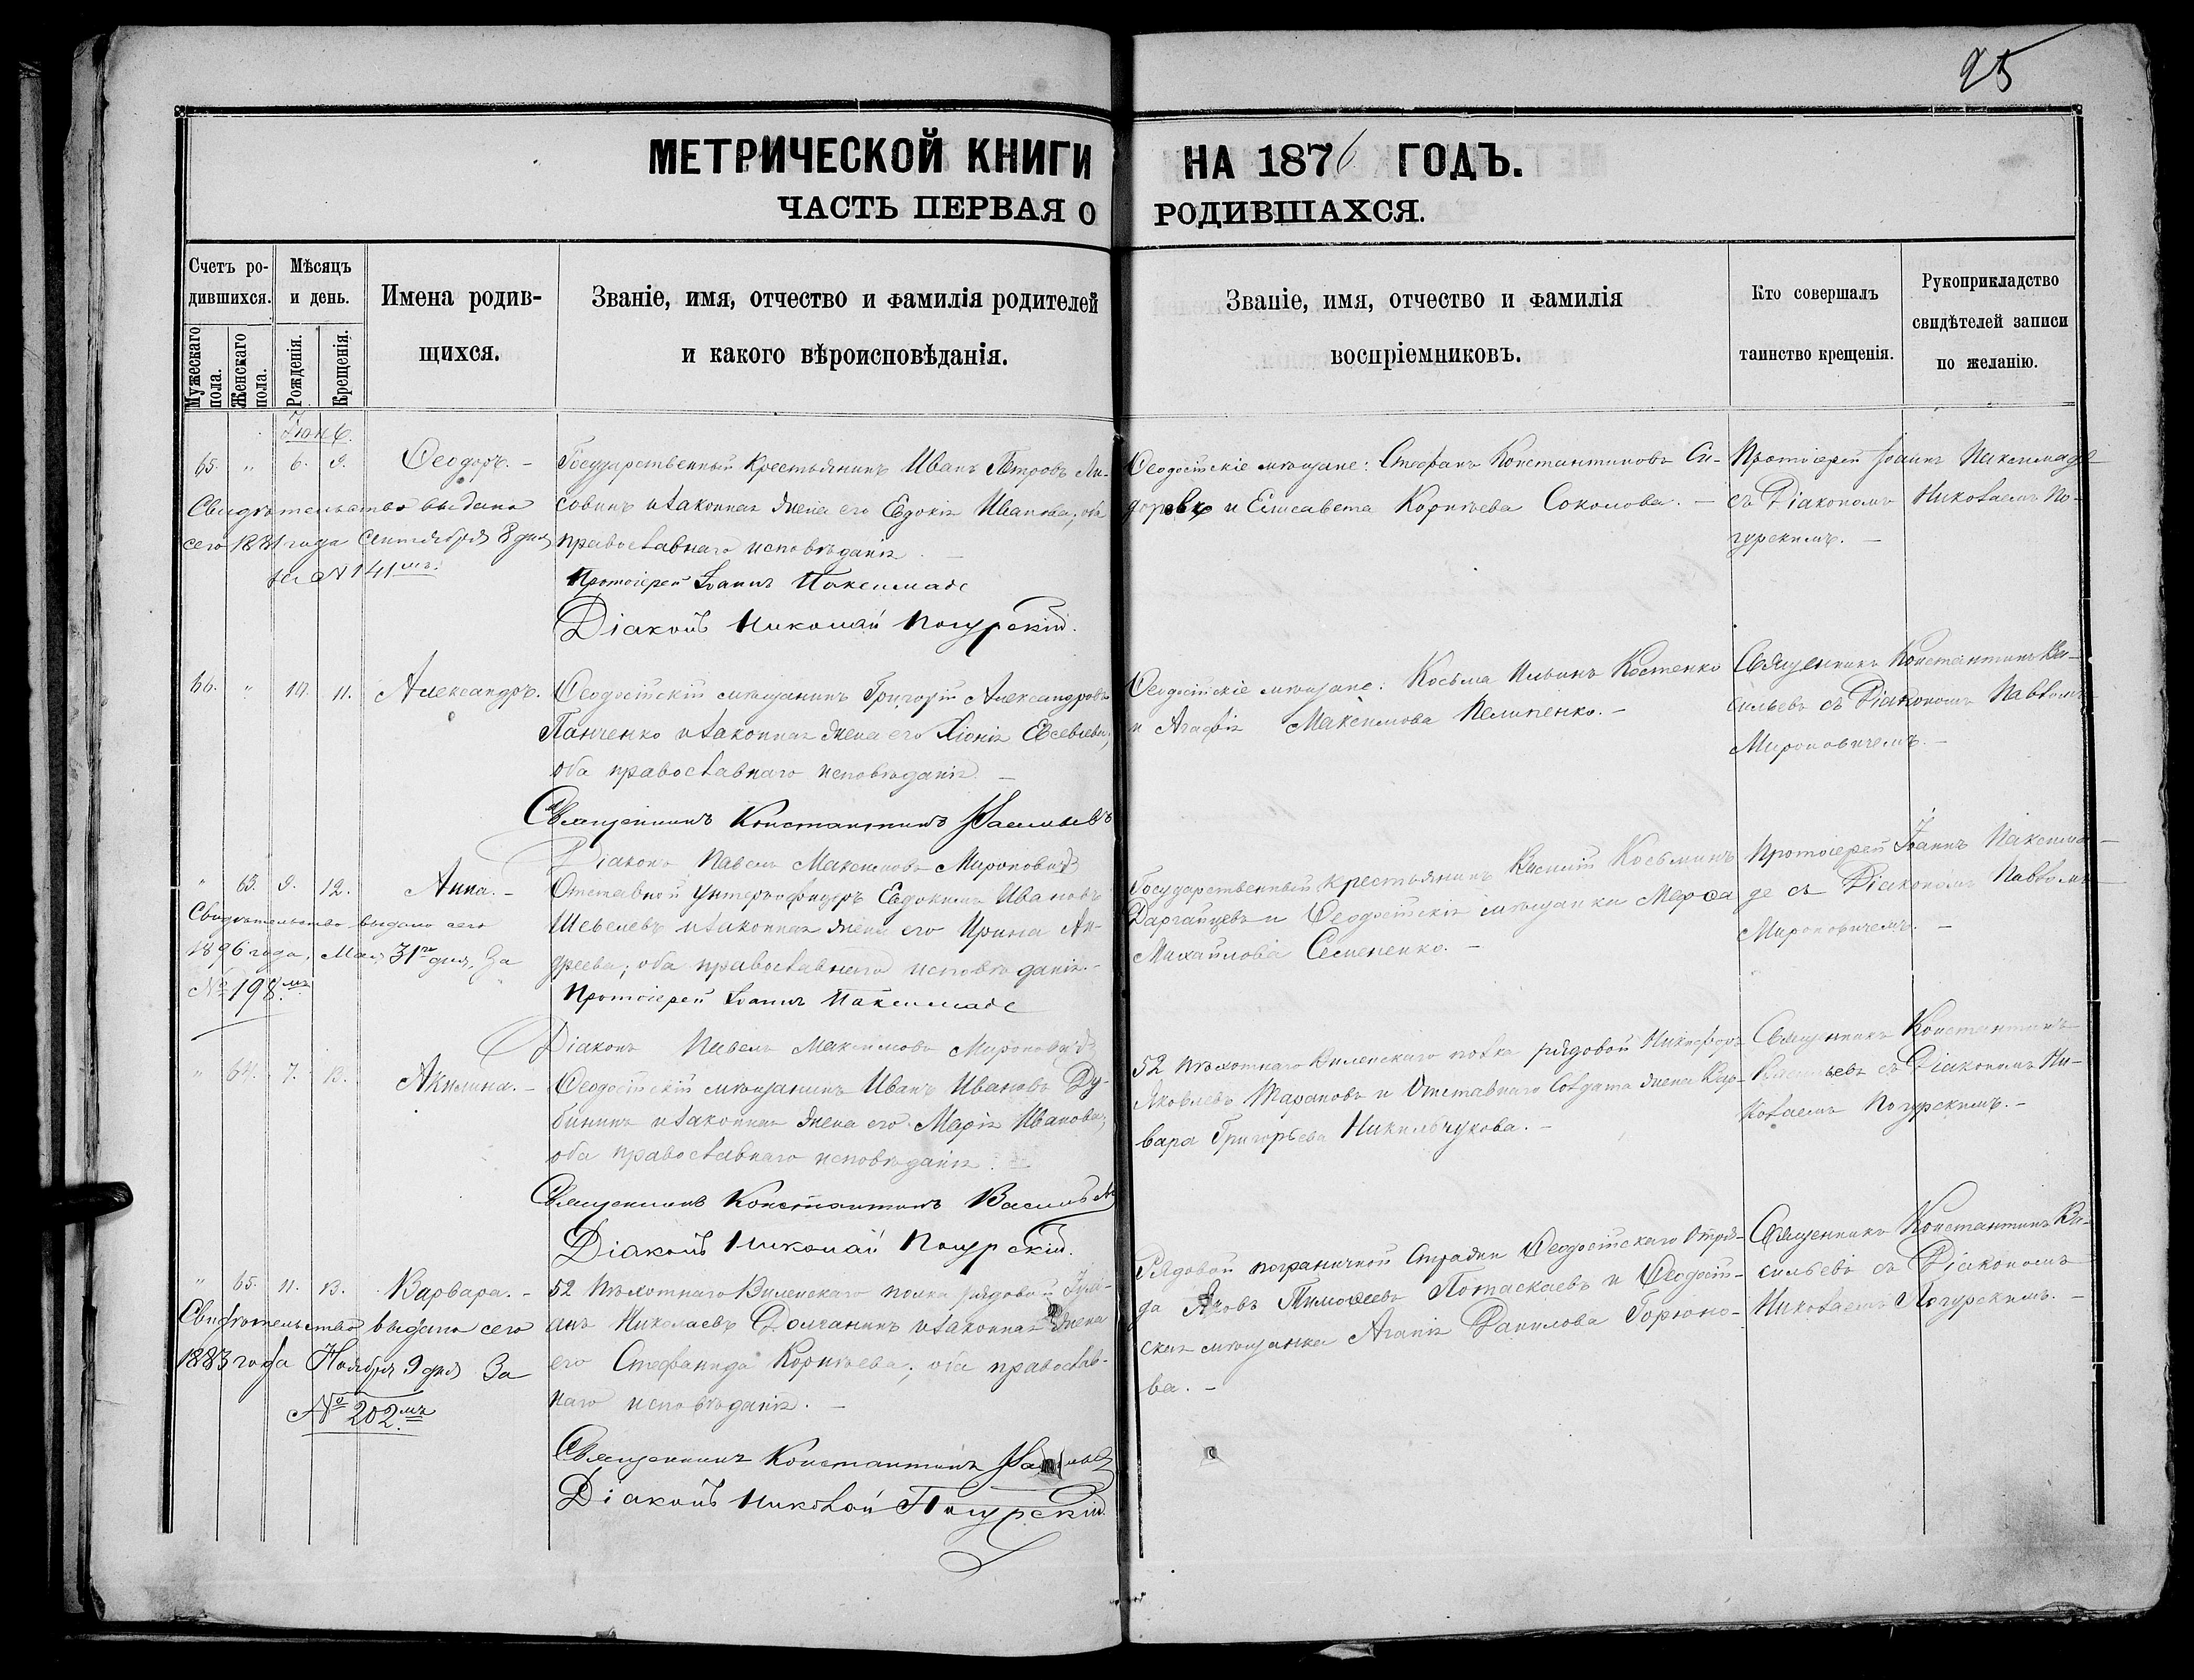 25
МЕТРИЧЕСКОЙ КНИГИ НА 1876 ГОДЪ.
ЧАСТЬ ПЕРВАЯ О РОДИВШАХСЯ.
Счетъ ро-
дившихся.
Мужескаго пола.
Женскаго пола.
Мѣсяцъ
и день.
Рожденія.
Крещенія.
Имена родив-
щихся.
Званіе, имя, отчество и фамилія родителей
и какого вѣроисповѣданія.
Званіе, имя, отчество и фамилія
воспріемниковъ.
Кто совершалъ
таинство крещенія.
Рукоприкладство
свидѣтелей записи
по желанію.
65. " 6. 9. Ѳеодоръ. -
Свидѣтельство выдано
сего 1881 года Сентября 8 дня
за № 141мъ.
Государственный крестьянинъ Иванъ Петровъ Ли-
совинъ и законная жена его Евдокія Иванова; оба
православнаго исповѣданія. -
Протоіерей Іоаннъ
Діаконъ Николай Погурскій.
Ѳеодосійскіе мѣщане: Стефанъ Константиновъ Си-
доревко и Елисавета Корнѣева Соколова. -
Протоіерей Іоаннъ
съ Діакономъ Николаемъ По-
гурскимъ. -
66. " 10. 11. Александръ.
Ѳеодосійскій мѣщанинъ Григорій Александровъ
Панченко и законная жена его Хіонія Евсевіева;
оба православнаго исповѣданія. -
Священникъ Константинъ Васильевъ
Діаконъ Павелъ Максимовъ Мироновичъ
Ѳеодосійскіе мѣщане: Косьма Ильинъ Костенко
и Агафія Максимова Пелипенко. -
Священникъ Константинъ Ва-
сильевъ съ Діакономъ Павломъ
Мироновичемъ. -
" 63. 9. 12. Анна. -
Свидѣтельство выдано сего
1896 года, Мая 31го дня, за
№ 198.мъ
Отставной унтеръ-офицеръ Евдокимъ Ивановъ
Шевелевъ и законная жена его Ирина Ан-
дреева; оба православнаго исповѣданія. -
Протоіерей Іоаннъ
Діаконъ Павелъ Максимовъ Мироновичъ
Государственный крестьянинъ Василій Косьминъ
Даргайцевъ и Ѳеодосійскія мѣщанки Марѳа
Михайлова Семененко. -
Протоіерей Іоаннъ
де съ Діакономъ Павломъ
Мироновичемъ. -
" 64. 7. 13. Акилина. -
Ѳеодосійскій мѣщанинъ Иванъ Ивановъ Ду-
бининъ и законная жена его Марія Иванова;
оба православнаго исповѣданія.
Священникъ Константинъ Васильевъ
Діаконъ Николай Погурскій.
52 пѣхотнаго Виленскаго полка рядовой Никифоръ
Яковлевъ Тарановъ и Отставнаго Солдата жена Вар-
вара Григорьева. -
Священникъ Константинъ
Васильевъ съ Діакономъ Ни-
колаемъ Погурскимъ. -
" 65. 11. 13. Варвара. -
Свидѣтельство выдано сего
1883 года Ноября 9 дня За
№ 202.мъ
52 пѣхотнаго Виленскаго полка рядовой Іулі-
анъ Николаевъ Долчанинъ и законная жена
его Стефанида Корнѣева; оба православ-
наго исповѣданія. -
Священникъ Константинъ
Діаконъ Николай Погурскій.
Рядовой пограничной Стражи Ѳеодосійскаго Отря-
да Яковъ Тимоѳеевъ Потаскаевъ и Ѳеодосій-
ская мѣщанка Агапія Данилова Горюно-
ва. -
Священникъ Константинъ Ва-
сильевъ съ Діакономъ
Николаемъ Погурскимъ. -